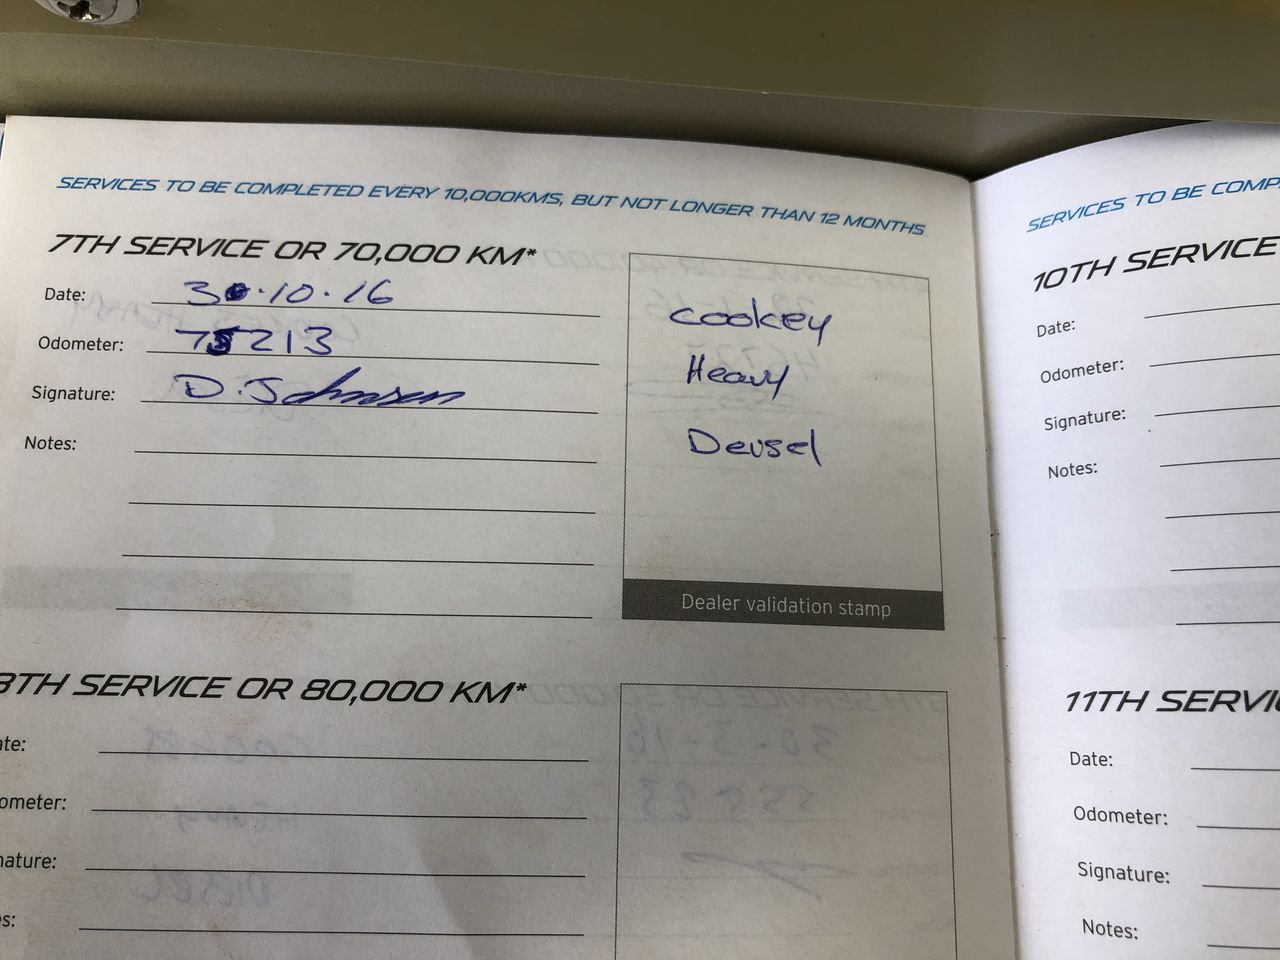 SERVICES TO BE COMPLETED EVERY 10,000KMS, BUT NOT LONGER THAN 12 MONTHS
7TH SERVICE OR 70,000 KM*
Date: 30.10.16
Odometer: 75213
Signature: D. Johnson
Notes:
Cookey
Heavy
Deusel
Dealer validation stamp
8TH SERVICE OR 80,000 KM*
ate:
ometer:
nature:
es:
SERVICES TO BE COMP
10TH SERVICE
Date:
Odometer:
Signature:
Notes:
11TH SERVI
Date:
Odometer:
Signature:
Notes: